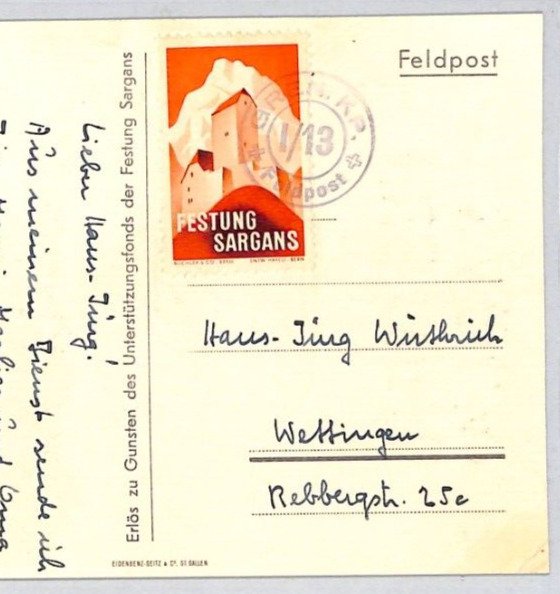 Feldpost
I/13
Feldpost
FESTUNG
SARGANS
Hans-Jürg Wüthrich
Wettingen
Rebbergstr. 25c
Erlös zu Gunsten des Unterstützungsfonds der Festung Sargans
Lieber Hans-Jürg!
Aus meinem Dienst sende ich
EIDENBENZ-SEITZ & Co. ST. GALLEN